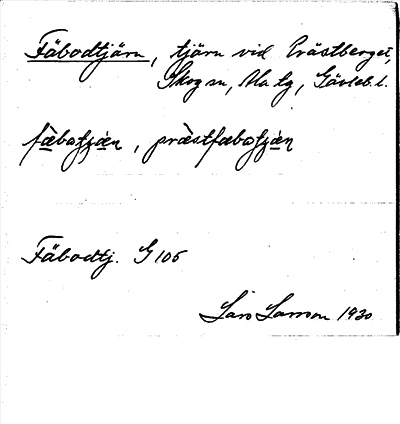 Fäbodtjärn, tjärn vid Prästberget,
Skog sn, Ala tg, Gävleb. l.
fæ̀botjæ̀n, præ̀stfæbotjæ̀n
Fäbodtj. G 106
Lars Larsson 1930